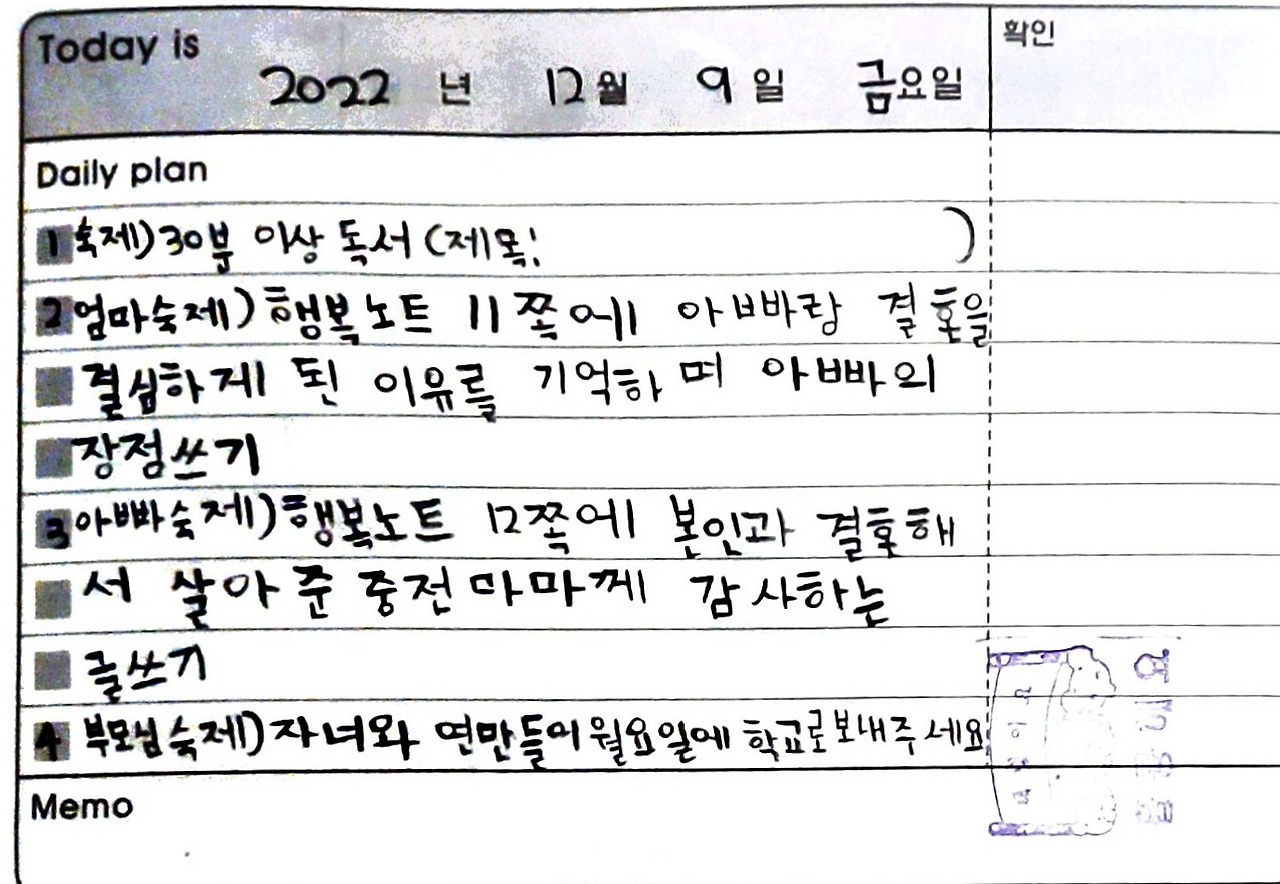 Today is
확인
2022 년 12 월 9 일 금요일
Daily plan
1 숙제) 30분 이상 독서 (제목: )
2 엄마숙제) 행복노트 11쪽에 아빠랑 결혼을
결심하게 된 이유를 기억하며 아빠의
장점쓰기
3 아빠숙제) 행복노트 12쪽에 본인과 결혼해
서 살아 준 중전마마께 감사하는
글쓰기
4 부모님숙제) 자녀와 연만들어 월요일에 학교로 보내주세요
Memo